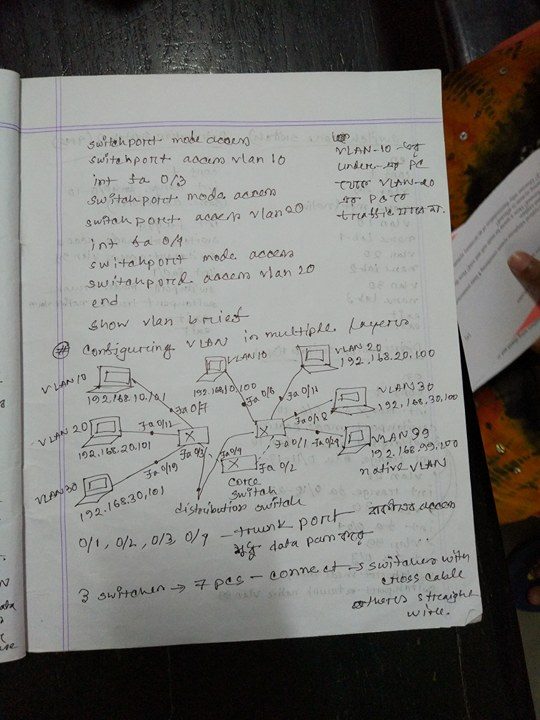 switchport mode access
switchport access vlan 10
int fa 0/3
switchport mode access
switchport access vlan 20
int fa 0/4
switchport mode access
switchport access vlan 20
end
show vlan brief
VLAN-10 এর
under এর PC
থেকে VLAN-20
এর PC তে
traffic যাবে না.
# Configuring VLAN in multiple layers
VLAN 10
192.168.10.101
Fa0/7
VLAN 10
192.168.10.100
Fa0/6
VLAN 20
192.168.20.100
Fa0/11
VLAN 20
192.168.20.101
Fa0/12
VLAN 30
192.168.30.100
Fa0/18
VLAN 30
192.168.30.101
Fa0/19
Fa0/3
Fa0/4
Fa0/1
Fa0/24
Fa0/2
VLAN 99
192.168.99.100
native VLAN
core
switch
distribution switch
0/1, 0/2, 0/3, 0/4 - trunk port access
শুধু data pass করে
3 switches → 7 pcs - connect → switches with
cross cable
others straight
wire.